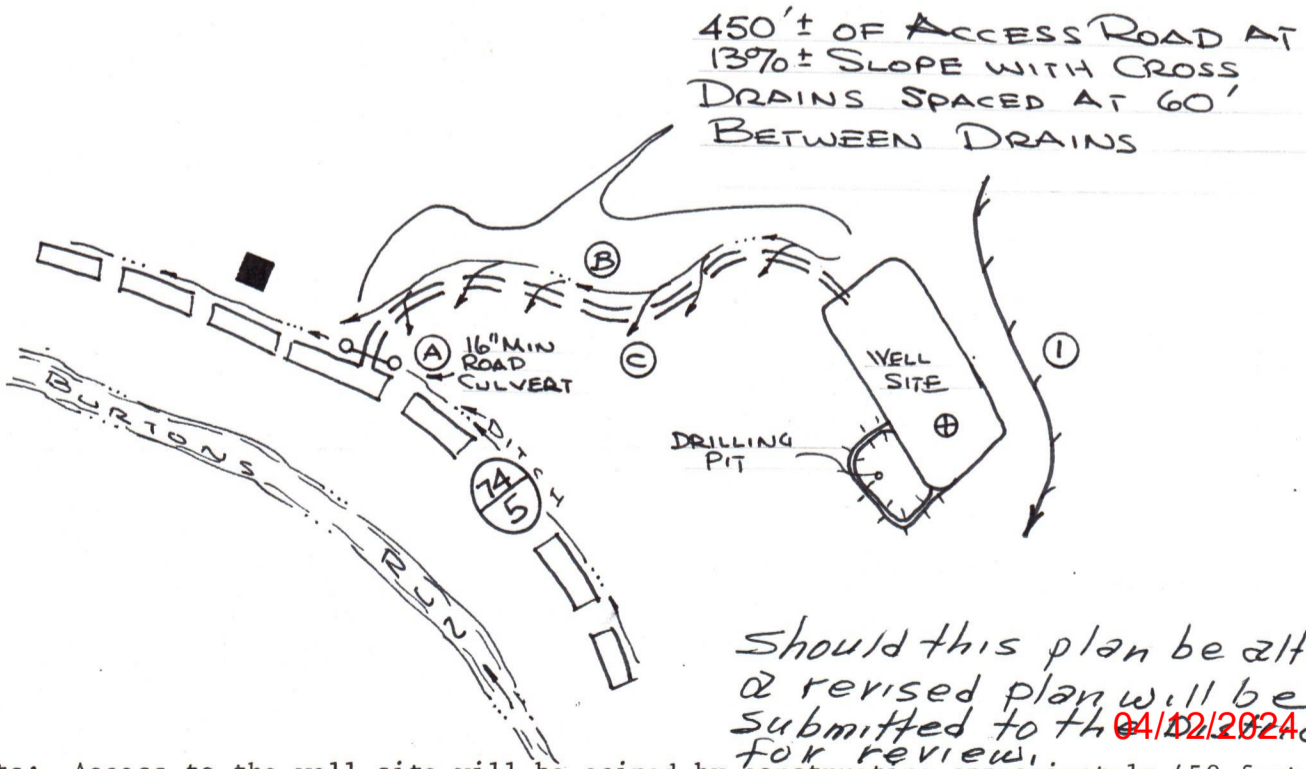 450'± OF ACCESS ROAD AT
13%± SLOPE WITH CROSS
DRAINS SPACED AT 60'
BETWEEN DRAINS
B
A
16" MIN
ROAD
CULVERT
C
WELL
SITE
1
DRILLING
PIT
DITCH
74
5
BURTONS RUN
Should this plan be
a revised plan will be
submitted to the
for review.
04/12/2024
Access to the well site will be gained by